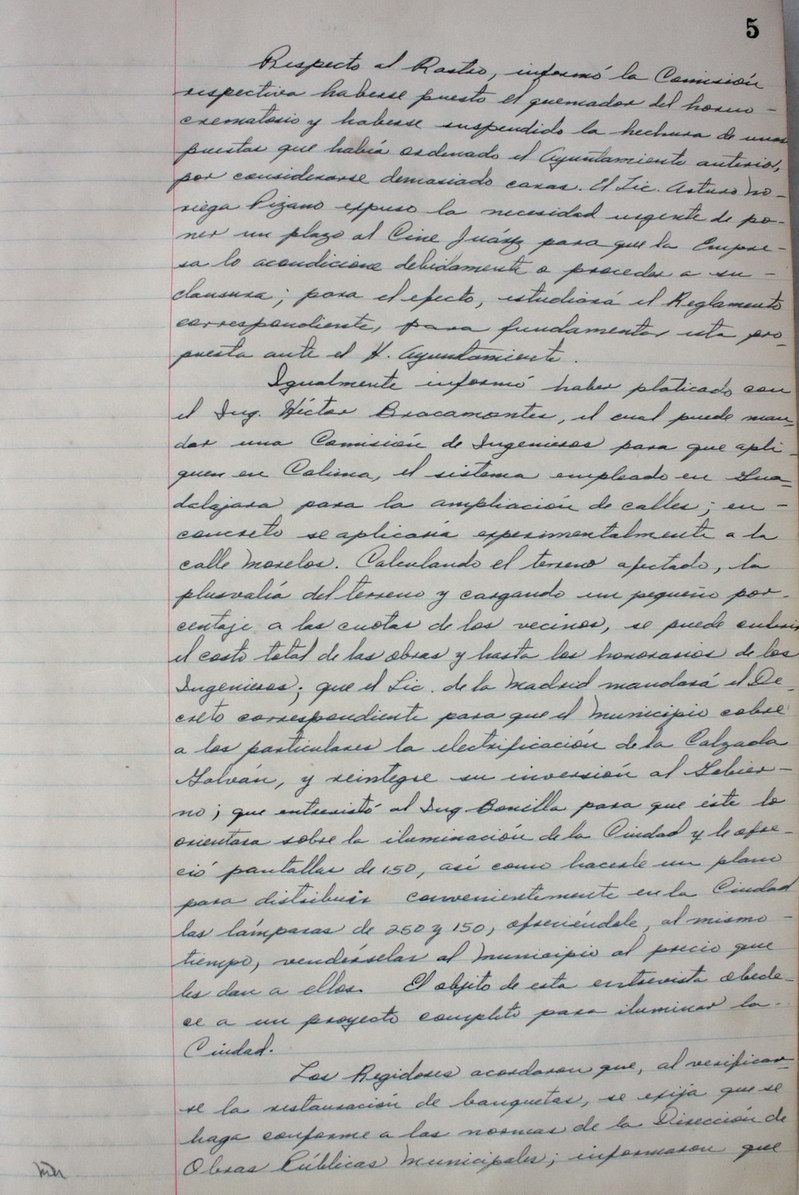 5
Respecto al Rastro, informó la Comisión
respectiva haberse puesto el quemador del horno -
crematorio y haberse suspendido la hechura de unas
puertas que había ordenado el Ayuntamiento anterior,
por considerarse demasiado caras. El Lic. Arturo No-
riega Pizano expuso la necesidad urgente de po-
ner un plazo al Cine Juárez para que la Empre-
sa lo acondicione debidamente o proceder a su -
clausura; para el efecto, estudiará el Reglamento
correspondiente, para fundamentar esta pro-
puesta ante el H. Ayuntamiento.
Igualmente informó haber platicado con
el Ing. Héctor Bracamontes, el cual puede man-
dar una Comisión de Ingenieros para que apli-
quen en Colima, el sistema empleado en Gua-
dalajara para la ampliación de calles; en -
concreto se aplicaría experimentalmente a la
calle Morelos. Calculando el terreno afectado, la
plusvalía del terreno y cargando un pequeño por-
centaje a las cuotas de los vecinos, se puede cubrir
el costo total de las obras y hasta los honorarios de los
Ingenieros; que el Lic. de la Madrid mandará el De-
creto correspondiente para que el Municipio cobre
a los particulares la electrificación de la Calzada
Galván, y reintegre su inversión al Gobier-
no; que entrevistó al Ing Bonilla para que éste lo
orientara sobre la iluminación de la Ciudad y le ofre-
ció pantallas de 150, así como hacerle un plano
para distribuir convenientemente en la Ciudad
las lámparas de 250 y 150, ofreciéndole, al mismo -
tiempo, vendérselas al Municipio al precio que
les dan a ellos. El objeto de esta entrevista obede-
ce a un proyecto completo para iluminar la -
Ciudad.
Los Regidores acordaron que, al verificar-
se la restauración de banquetas, se exija que se
haga conforme a las normas de la Dirección de
Obras Públicas Municipales; informaron que